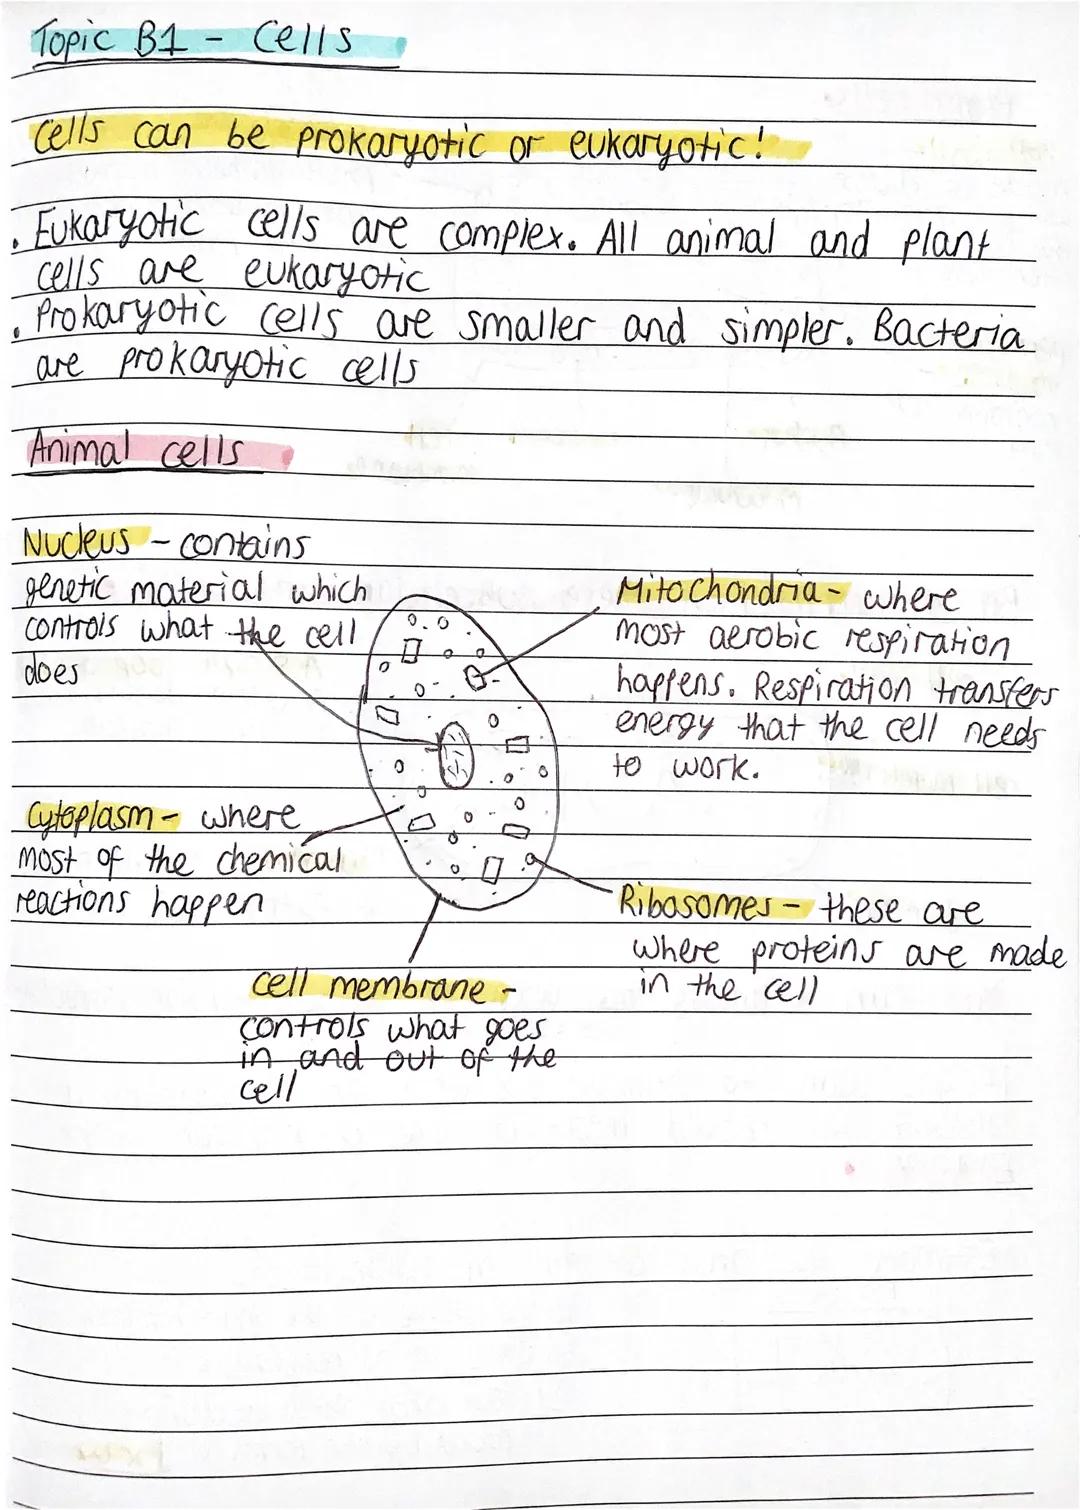 Topic B1 - Cells
Cells can be prokaryotic or eukaryotic!
. Eukaryotic cells are complex. All animal and plant
cells are eukaryotic
. Prokaryotic cells are smaller and simpler. Bacteria
are prokaryotic cells
Animal cells
Nucleus - contains
genetic material which
controls what the cell
does
Mitochondria - where
most aerobic respiration
happens. Respiration transfers
energy that the cell needs
to work.
Cytoplasm - where
most of the chemical
reactions happen
Ribosomes - these are
where proteins are made
in the cell
cell membrane -
controls what goes
in and out of the
cell